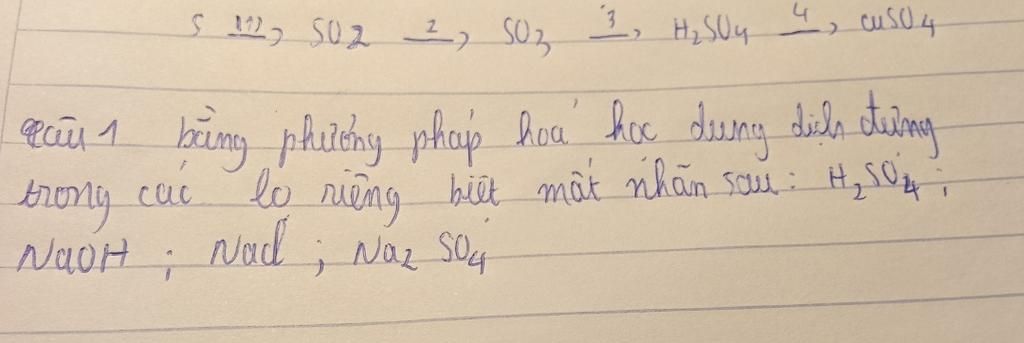 S (1)→ SO2 2→ SO3 3→ H2SO4 4→ CuSO4
Câu 1 bằng phương pháp hoá học dung dịch đựng
trong các lo riêng biệt mất nhãn sau: H2SO4;
NaOH; NaCl; Na2SO4